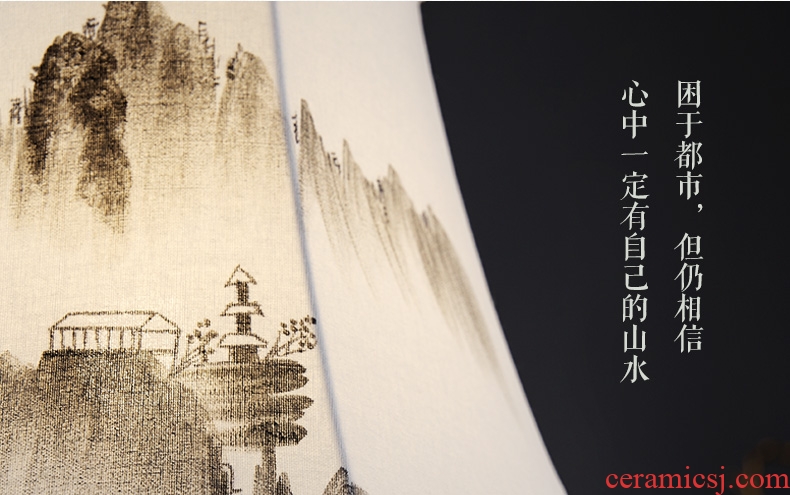 困于都市，但仍相信
心中一定有自己的山水
ceramicsj.com